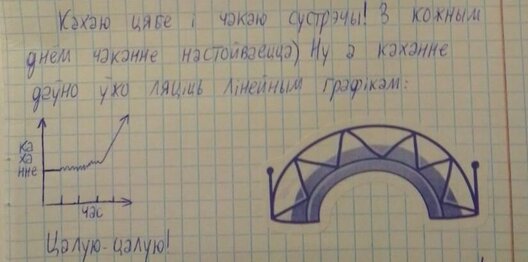 Кахаю цябе і чакаю сустрэчы! З кожным
днём чаканне настойваецца) Ну а каханне
даўно ўжо ляціць лінейным графікам:
ка
ха
нне
час
Цалую-цалую!